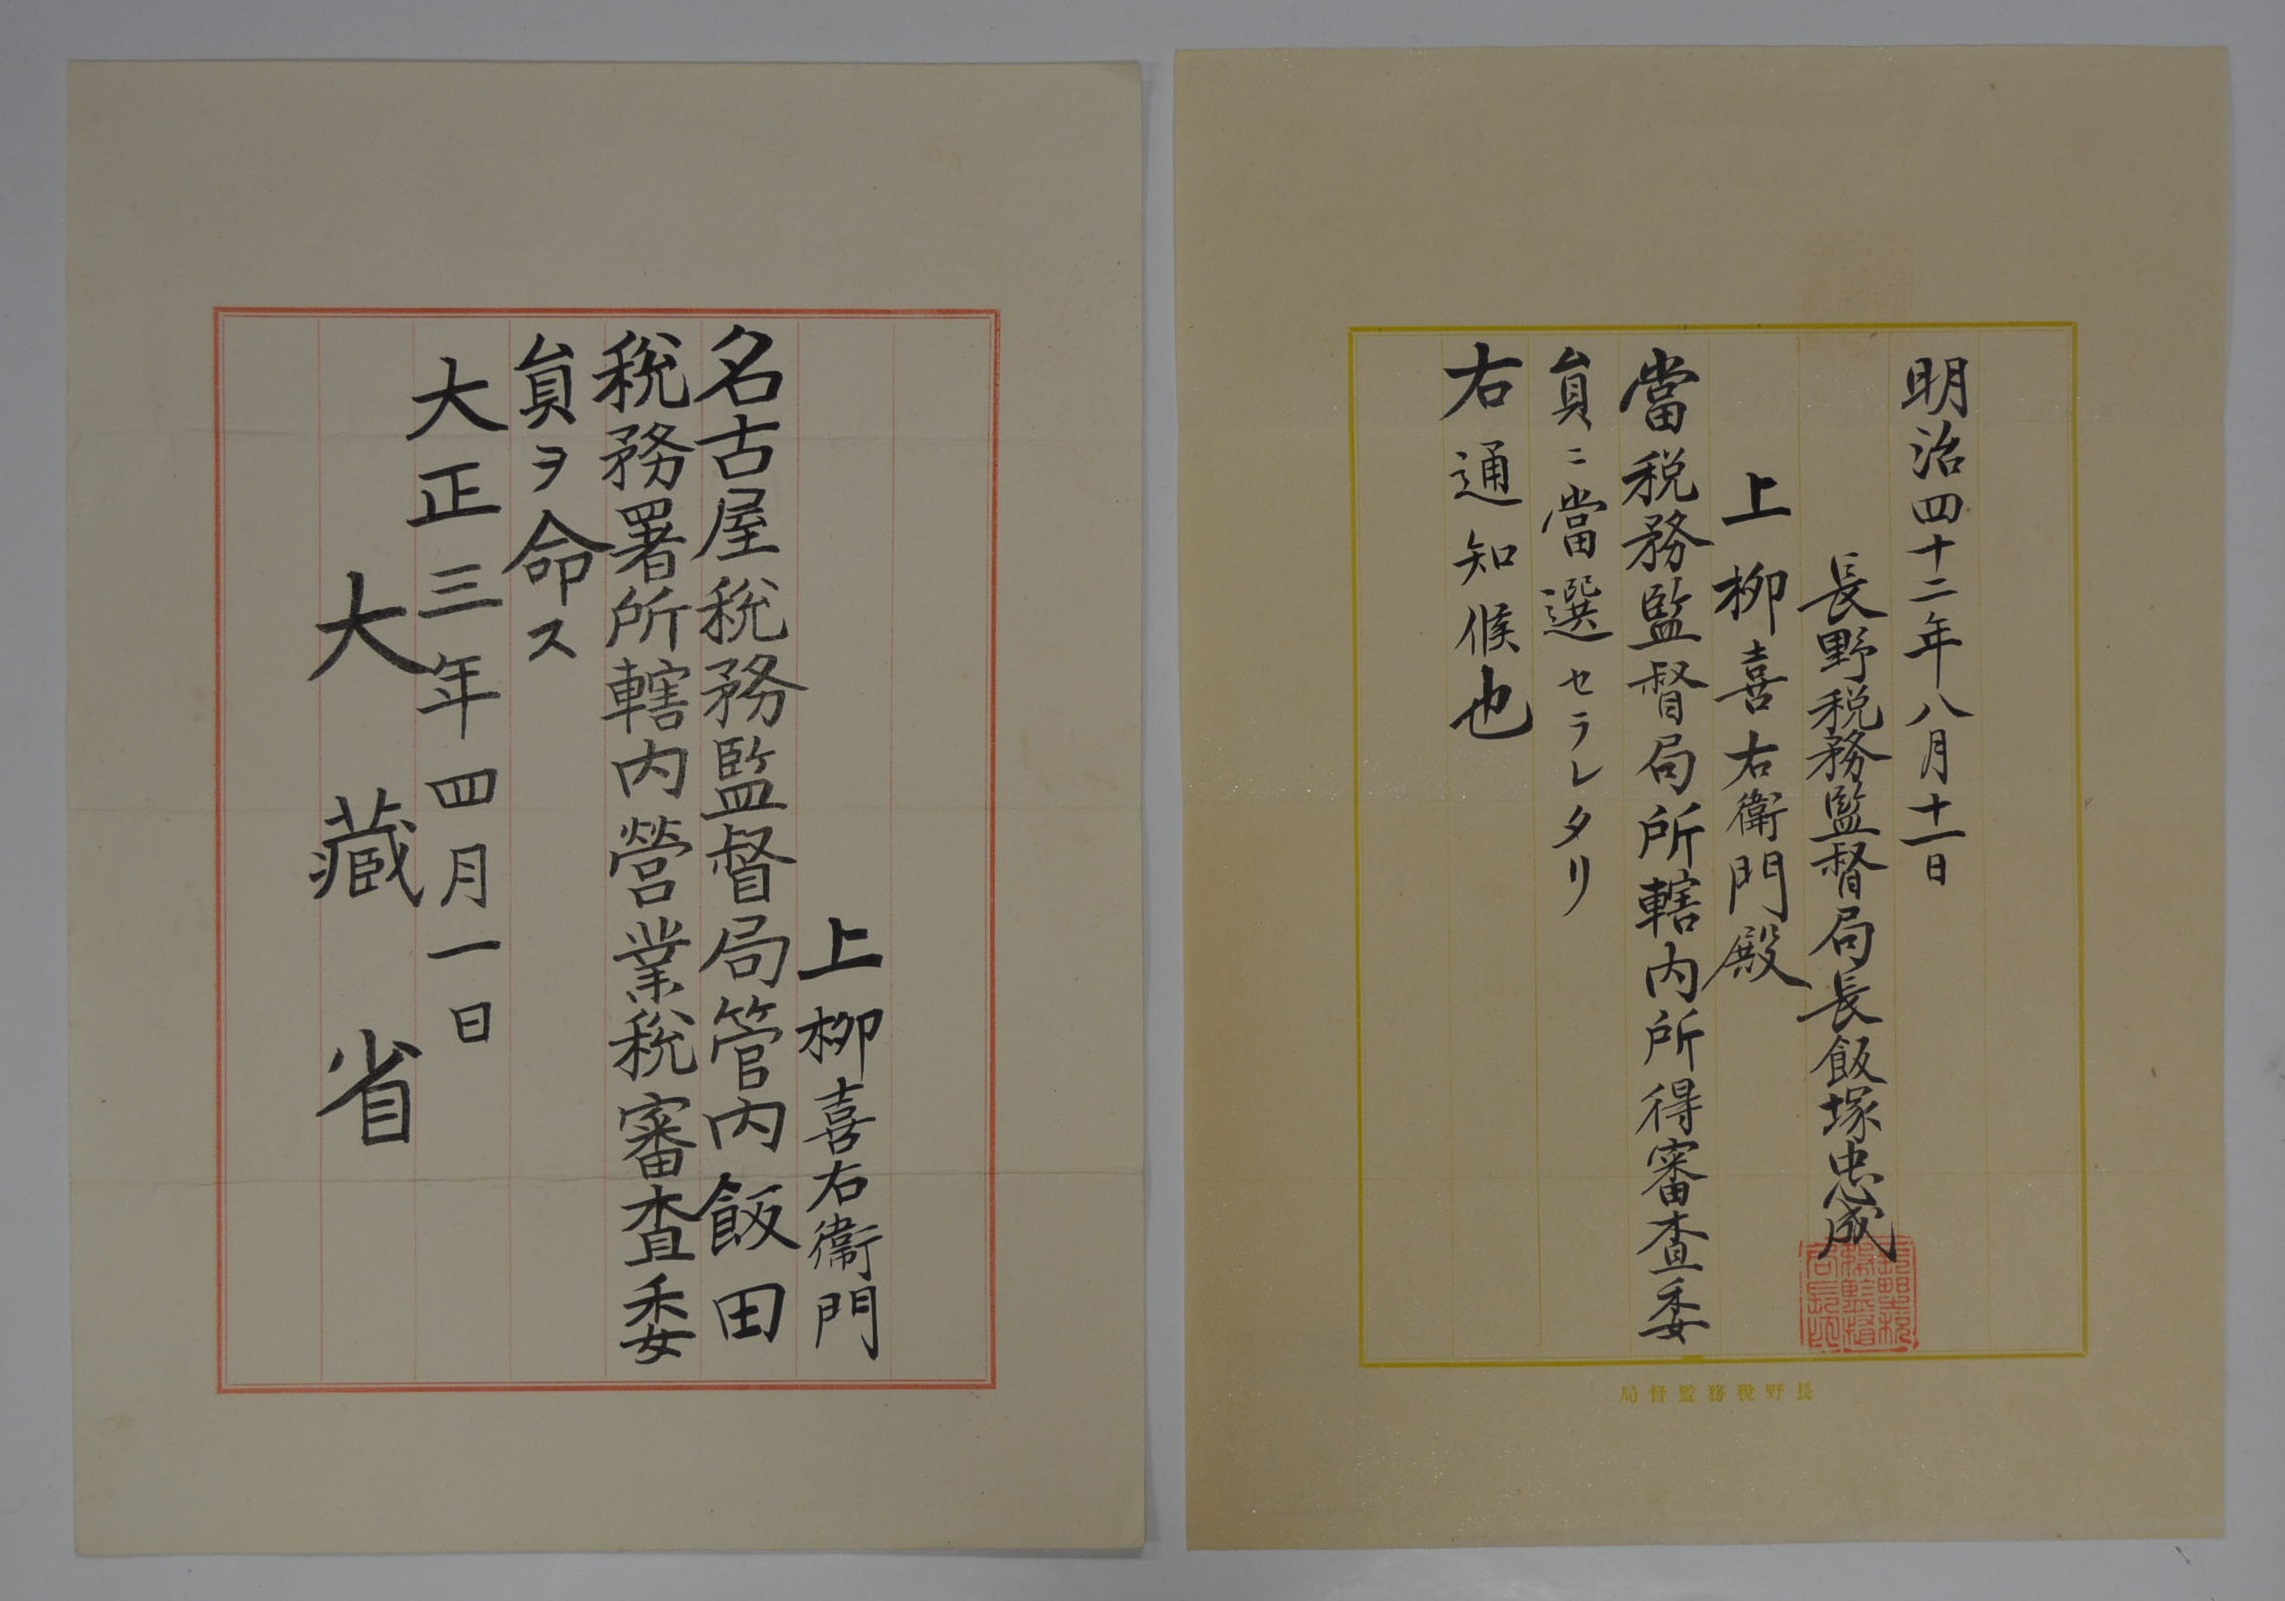 明治四十二年八月十一日
長野税務監督局長飯塚忠成
上柳喜右衛門殿
當税務監督局所轄内所得審査委
員ニ當選セラレタリ
右通知候也
長野税務監督局
上柳喜右衛門
名古屋税務監督局管内飯田
税務署所轄内營業税審査委
員ヲ命ス
大正三年四月一日
大藏省